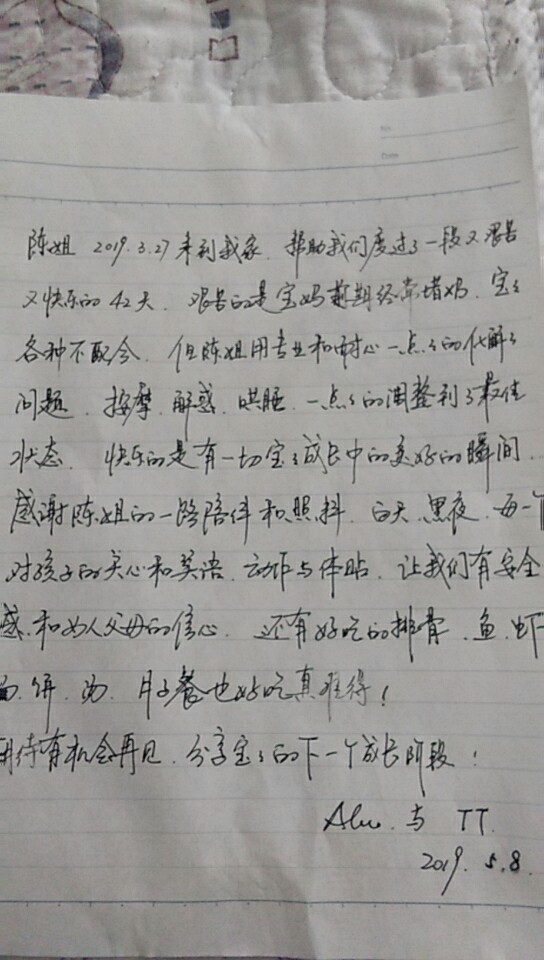 No.
Date
陈姐 2019.3.27来到我家. 帮助我们度过了一段又艰苦
又快乐的42天. 艰苦的是宝妈前期经常堵奶. 宝宝
各种不配合. 但陈姐用专业和耐心一点点的化解了
问题. 按摩. 解惑. 哄睡. 一点点的调整到了最佳
状态. 快乐的是有一切宝宝成长中的美好的瞬间.
感谢陈姐的一路陪伴和照料. 白天. 黑夜. 每一个
对孩子的关心和笑语. 动作与体贴. 让我们有安全
感. 和为人父母的信心. 还有好吃的排骨. 鱼. 虾
饼. 汤. 月子餐也好吃真难得!
期待有机会再见. 分享宝宝的下一个成长阶段!
与 TT.
2019. 5.8.